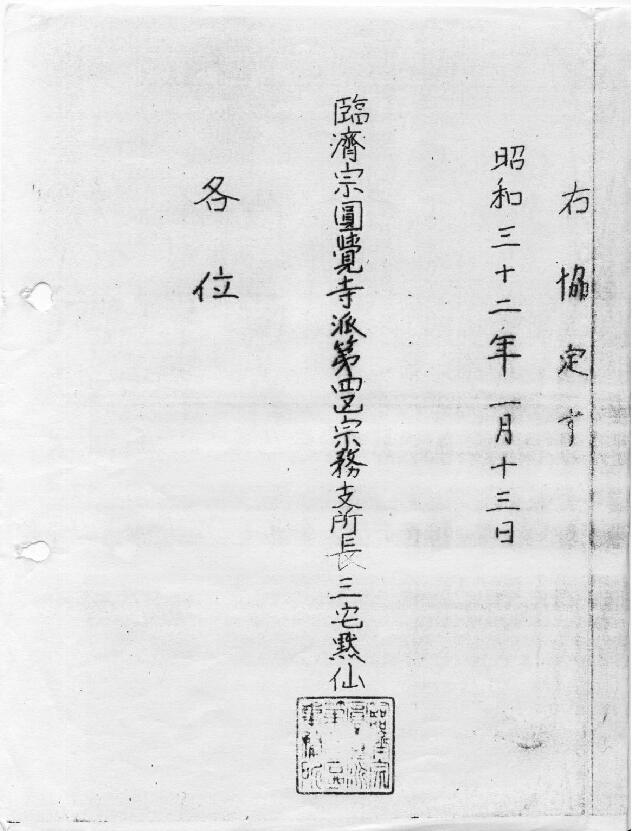 右協定す
昭和三十二年一月十三日
臨濟宗圓覺寺派第四区宗務支所長三宅黙仙
各位